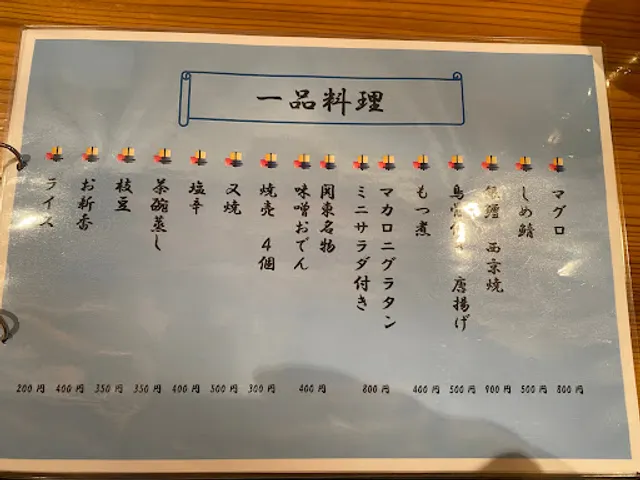 一品料理
マグロ
しめ鯖
西京焼
唐揚げ
もつ煮
マカロニグラタン
ミニサラダ付き
関東名物
味噌おでん
焼売 4個
叉焼
塩辛
茶碗蒸し
枝豆
お新香
ライス
200円 400円 350円 350円 400円 500円 300円 400円 800円 400円 500円 900円 500円 800円